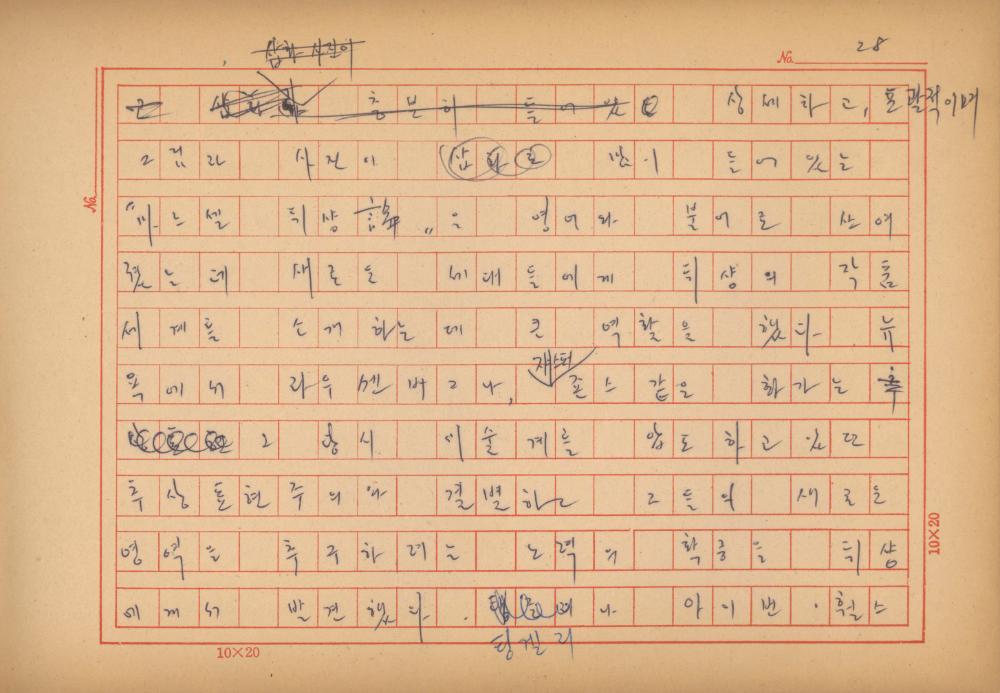 No. 28
삽화 사진이
큰 충분히 들어 있 상세하고, 포괄적이며
그림과 사진이 삽화로 많이 들어 있는
"마르셀 뒤샹論"을 영어와 불어로 쓰여
졌는데 새로운 세대들에게 뒤샹의 작품
세계를 소개하는데 큰 역할을 했다. 뉴
욕에서 라우센버그나, 쟈스퍼 존스 같은 화가는 추
그 당시 미술계를 압도하고 있던
추상표현주의와 결별하고 그들의 새로운
영역을 추구하려는 노력의 확증을 뒤샹
에게서 발견했다. 나 아이번·휠스
팅겔리
No.
10×20
10×20